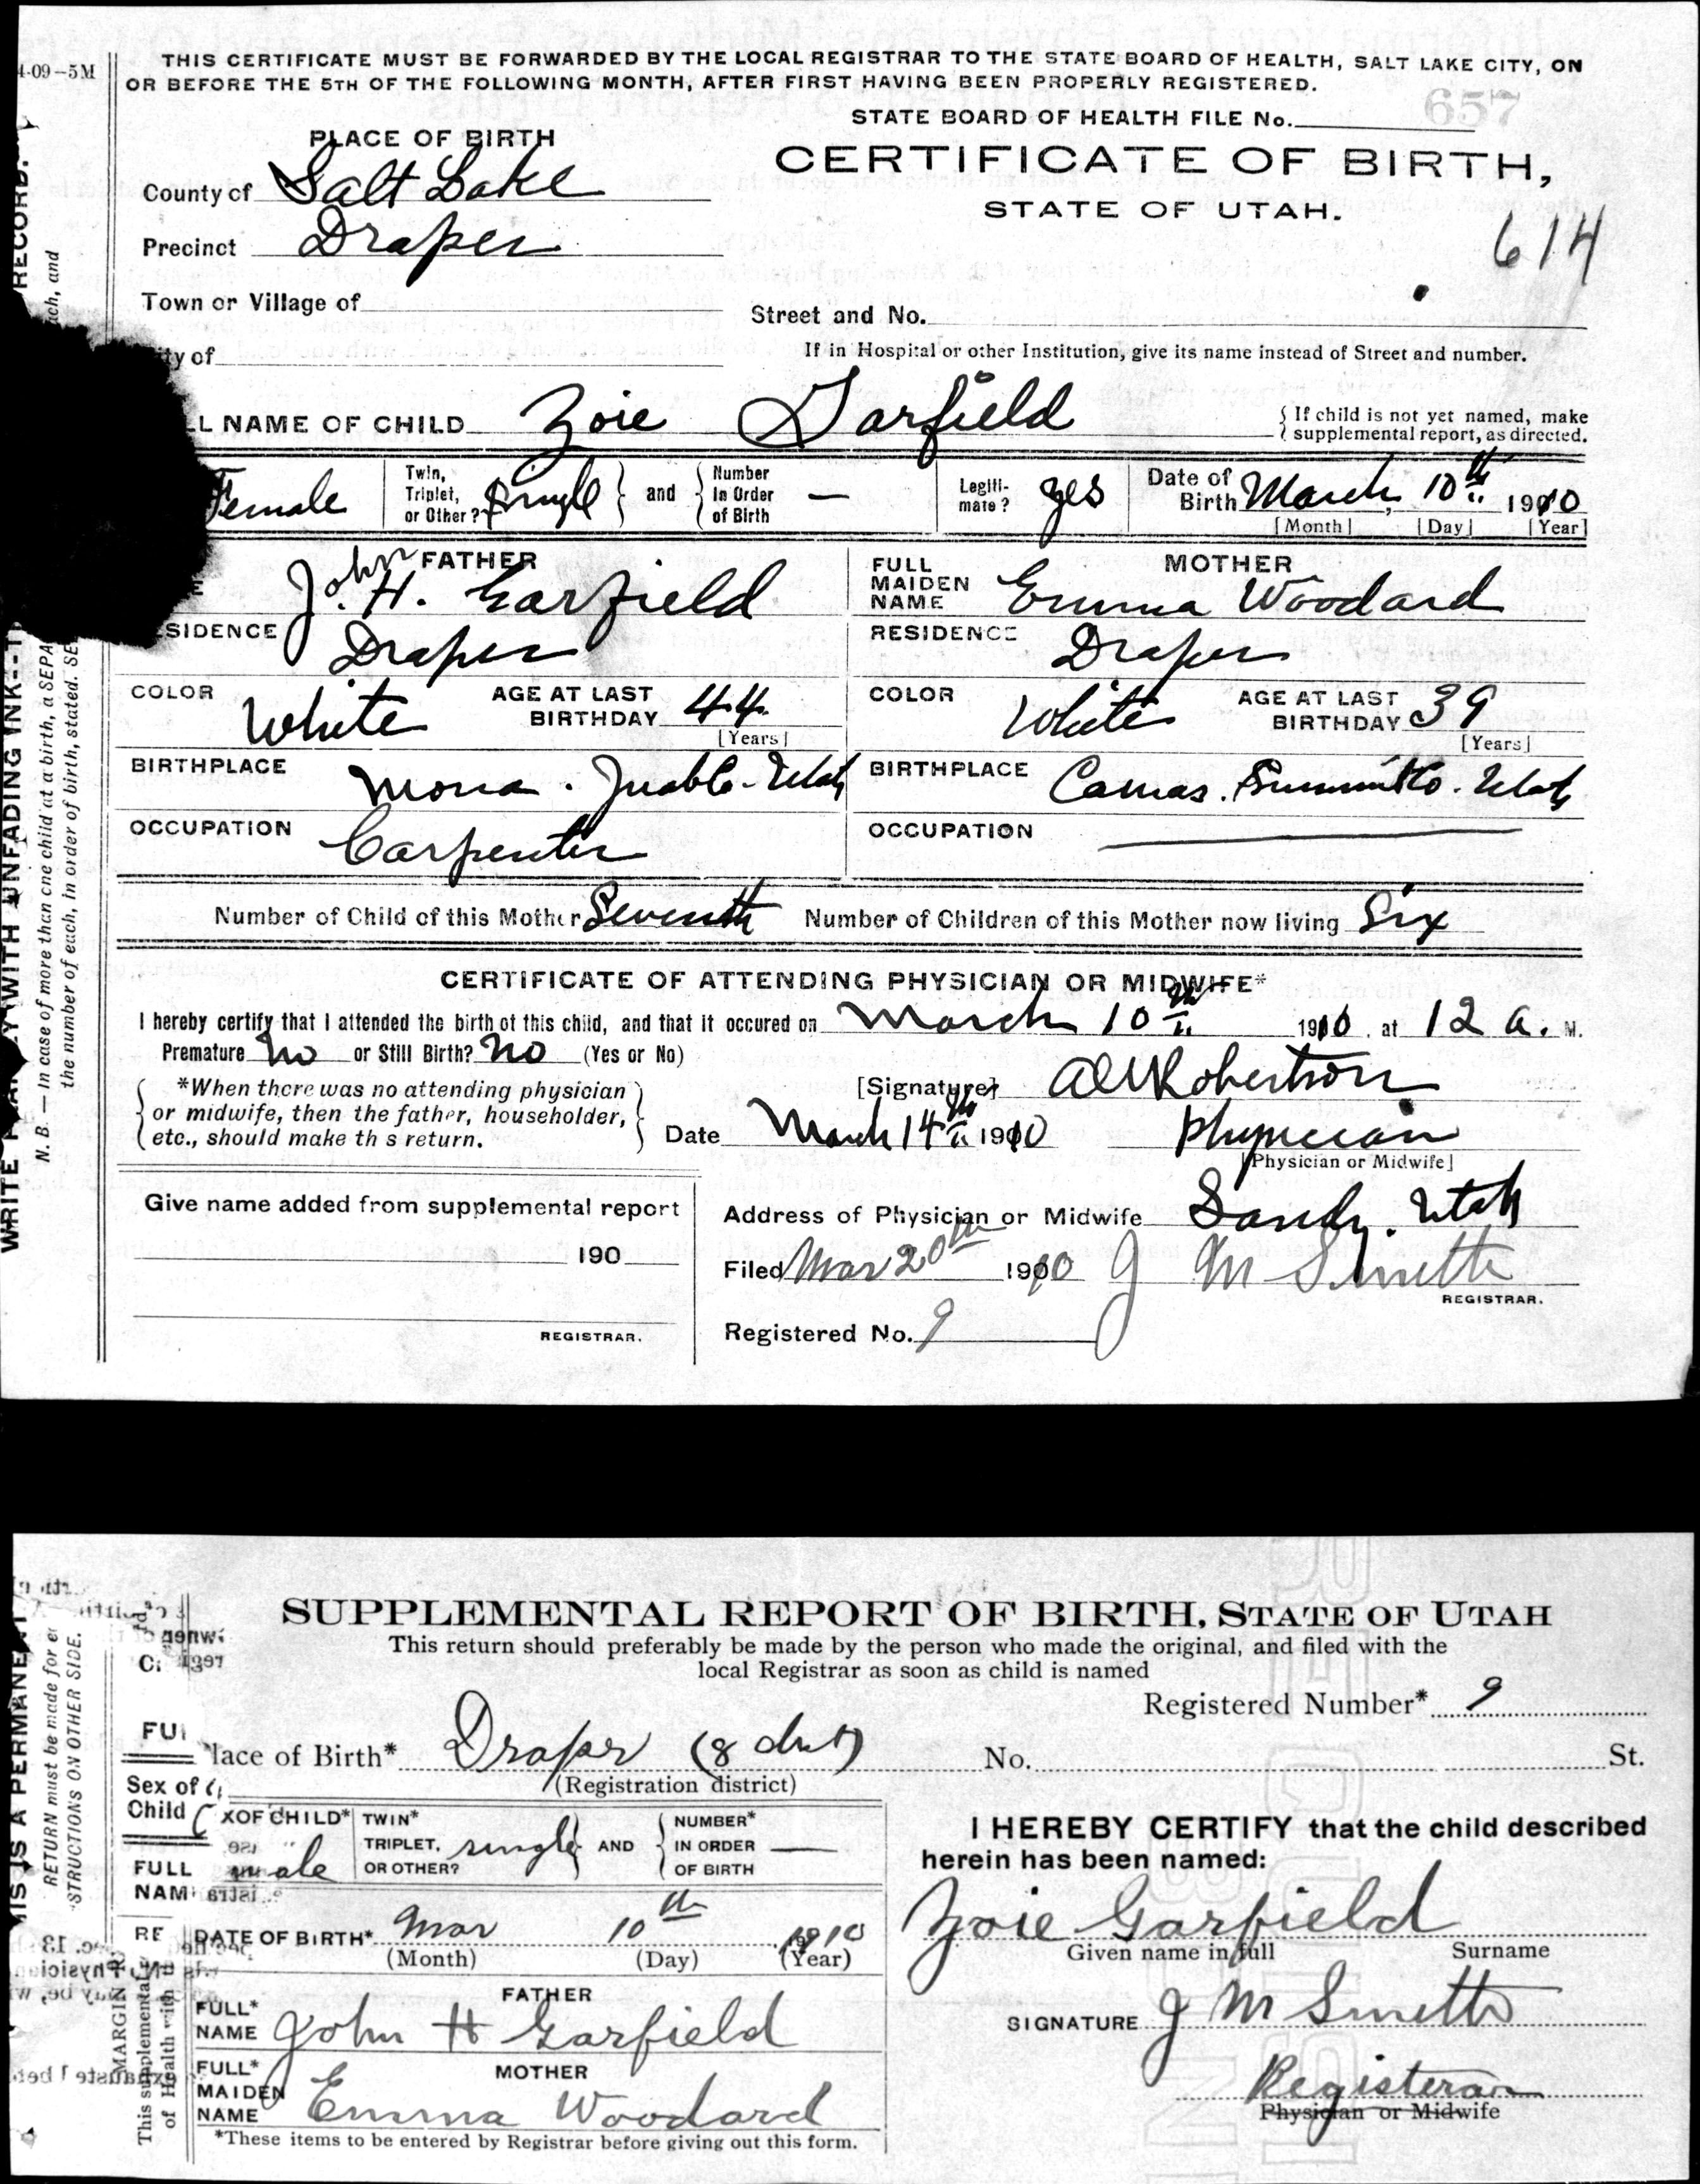 4-09-5M
THIS CERTIFICATE MUST BE FORWARDED BY THE LOCAL REGISTRAR TO THE STATE BOARD OF HEALTH, SALT LAKE CITY, ON
OR BEFORE THE 5TH OF THE FOLLOWING MONTH, AFTER FIRST HAVING BEEN PROPERLY REGISTERED.
STATE BOARD OF HEALTH FILE No. 657
PLACE OF BIRTH
CERTIFICATE OF BIRTH,
STATE OF UTAH.
614
County of Salt Lake
Precinct Draper
Town or Village of
Street and No.
ty of
If in Hospital or other Institution, give its name instead of Street and number.
L NAME OF CHILD Zoie Garfield
If child is not yet named, make
supplemental report, as directed.
Female
Twin,
Triplet,
or Other? Single and
Number
In Order
of Birth —
Legiti-
mate? yes
Date of
Birth March 10th 1910
[Month] [Day] [Year]
FATHER
John H. Garfield
FULL
MAIDEN
NAME
MOTHER
Emma Woodard
SIDENCE Draper
RESIDENCE Draper
COLOR White AGE AT LAST
BIRTHDAY 44
[Years]
COLOR White AGE AT LAST
BIRTHDAY 39
[Years]
BIRTHPLACE Mona. Juab Co-Utah
BIRTHPLACE Camas. Summit Co. Utah
OCCUPATION Carpenter
OCCUPATION
Number of Child of this Mother Seventh Number of Children of this Mother now living Six
CERTIFICATE OF ATTENDING PHYSICIAN OR MIDWIFE*
I hereby certify that I attended the birth of this child, and that it occured on March 10th 1910. at 12 a. M.
Premature No or Still Birth? No (Yes or No)
*When there was no attending physician
or midwife, then the father, householder,
etc., should make th s return.
[Signature] Robertson
Date March 14th 1910 Physician
[Physician or Midwife]
Give name added from supplemental report
190
REGISTRAR.
Address of Physician or Midwife Sandy. Utah
Filed Mar 20th 1910 J M Smith
REGISTRAR.
Registered No. 9
RECORD.
ach, and
N. B. — In case of more than one child at a birth, a SEPA
the number of each, in order of birth, stated. SE
WITH UNFADING INK
WRITE
SUPPLEMENTAL REPORT OF BIRTH, STATE OF UTAH
This return should preferably be made by the person who made the original, and filed with the
local Registrar as soon as child is named
Registered Number* 9
lace of Birth* Draper No. St.
(Registration district)
Sex of
Child
FULL
NAM
RE
XOF CHILD* male
TWIN*
TRIPLET,
OR OTHER? single AND
NUMBER*
IN ORDER
OF BIRTH —
DATE OF BIRTH* Mar 10th 1910
(Month) (Day) (Year)
FATHER
FULL*
NAME John H Garfield
MOTHER
FULL*
MAIDEN
NAME Emma Woodard
*These items to be entered by Registrar before giving out this form.
I HEREBY CERTIFY that the child described
herein has been named:
Zoie Garfield
Given name in full Surname
SIGNATURE J M Smith
Registerar
Physician or Midwife
IS IS A PERMANE
RETURN must be made for e
STRUCTIONS ON OTHER SIDE.
MARGIN
This supplementa
of Health with